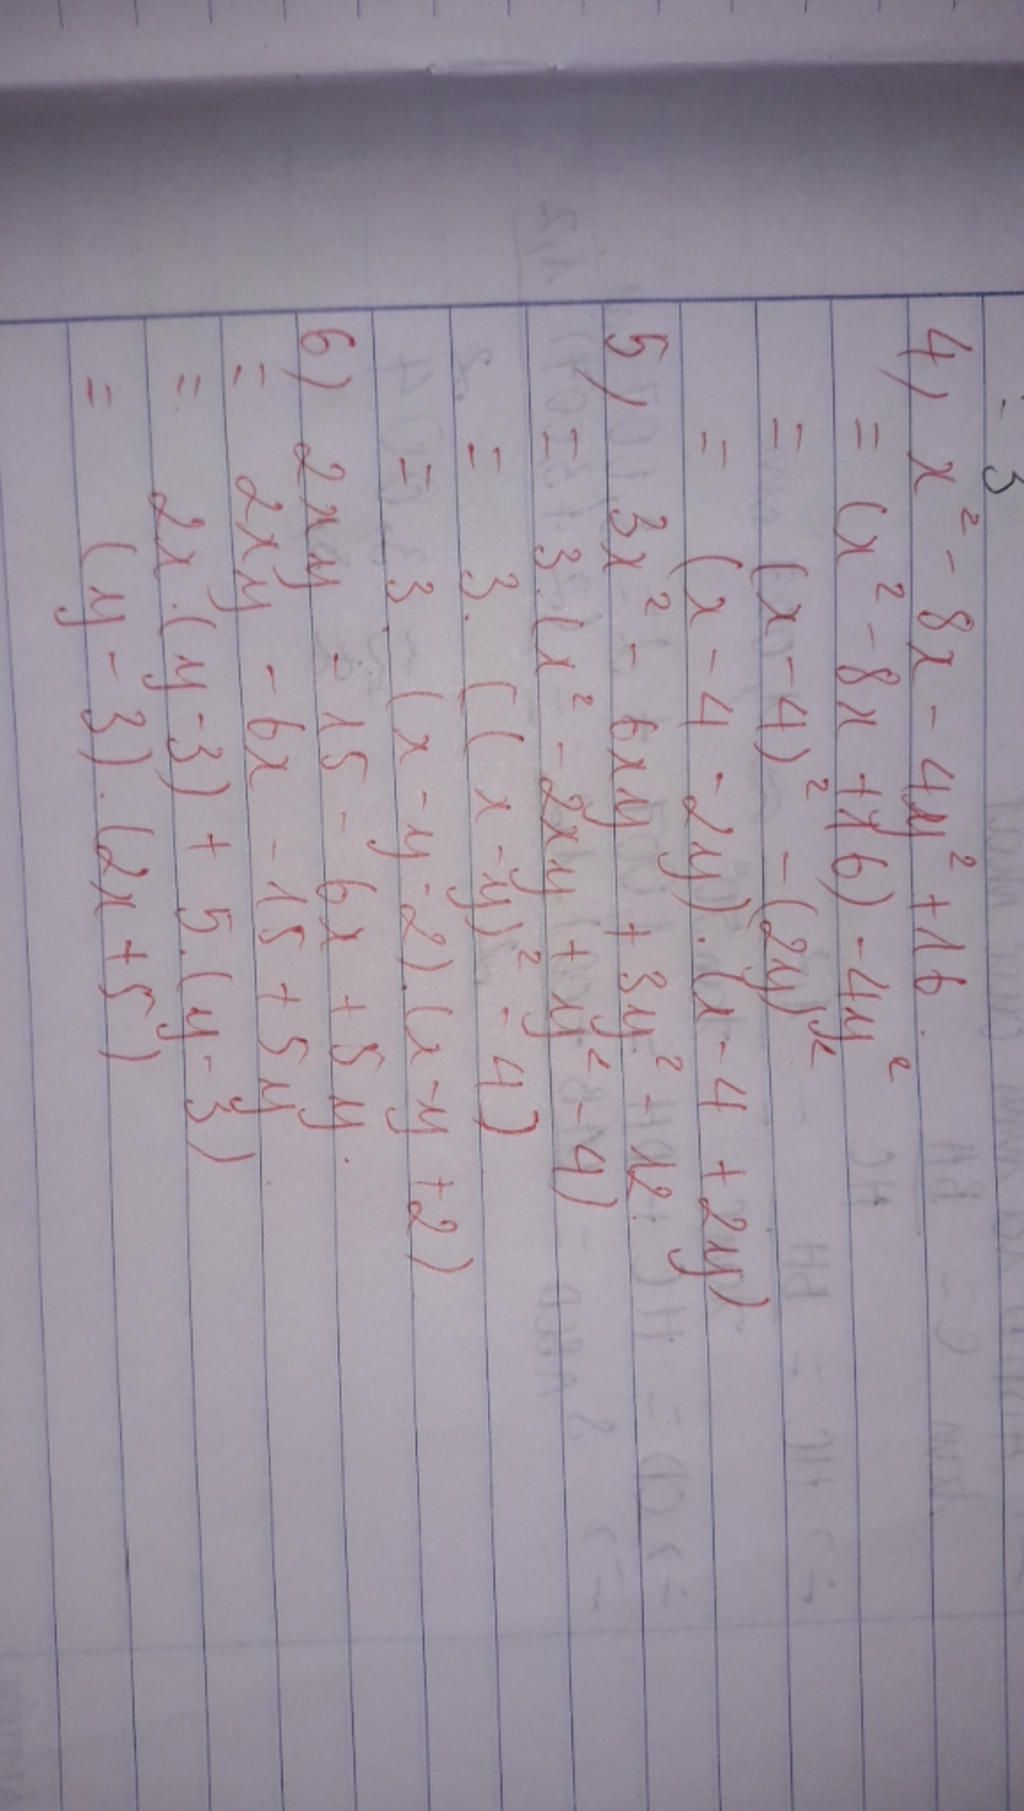 4) x² - 8x - 4y² + 16.
= (x² - 8x + 16) - 4y²
= (x - 4)² - (2y)²
= (x - 4 - 2y).(x - 4 + 2y)
5) 3x² - 6xy + 3y² - 12.
= 3.(x² - 2xy + y² - 4)
= 3.((x - y)² - 4)
= 3.(x - y - 2).(x - y + 2)
6) 2xy - 15 - 6x + 5y.
= 2xy - 6x - 15 + 5y
= 2x.(y - 3) + 5.(y - 3)
= (y - 3).(2x + 5)